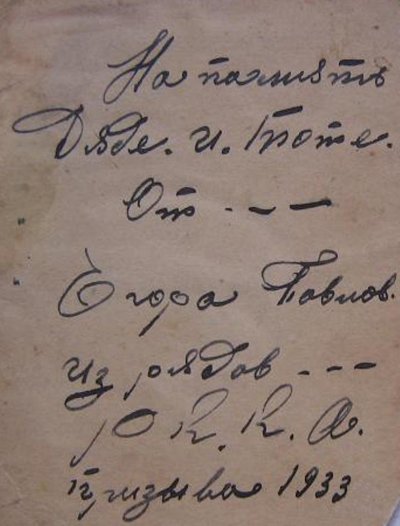 На память
Дяде. и. Тоте.
От - - -
Егора Павлов.
из рядов - - -
Р К. К. А.
Призыва 1933